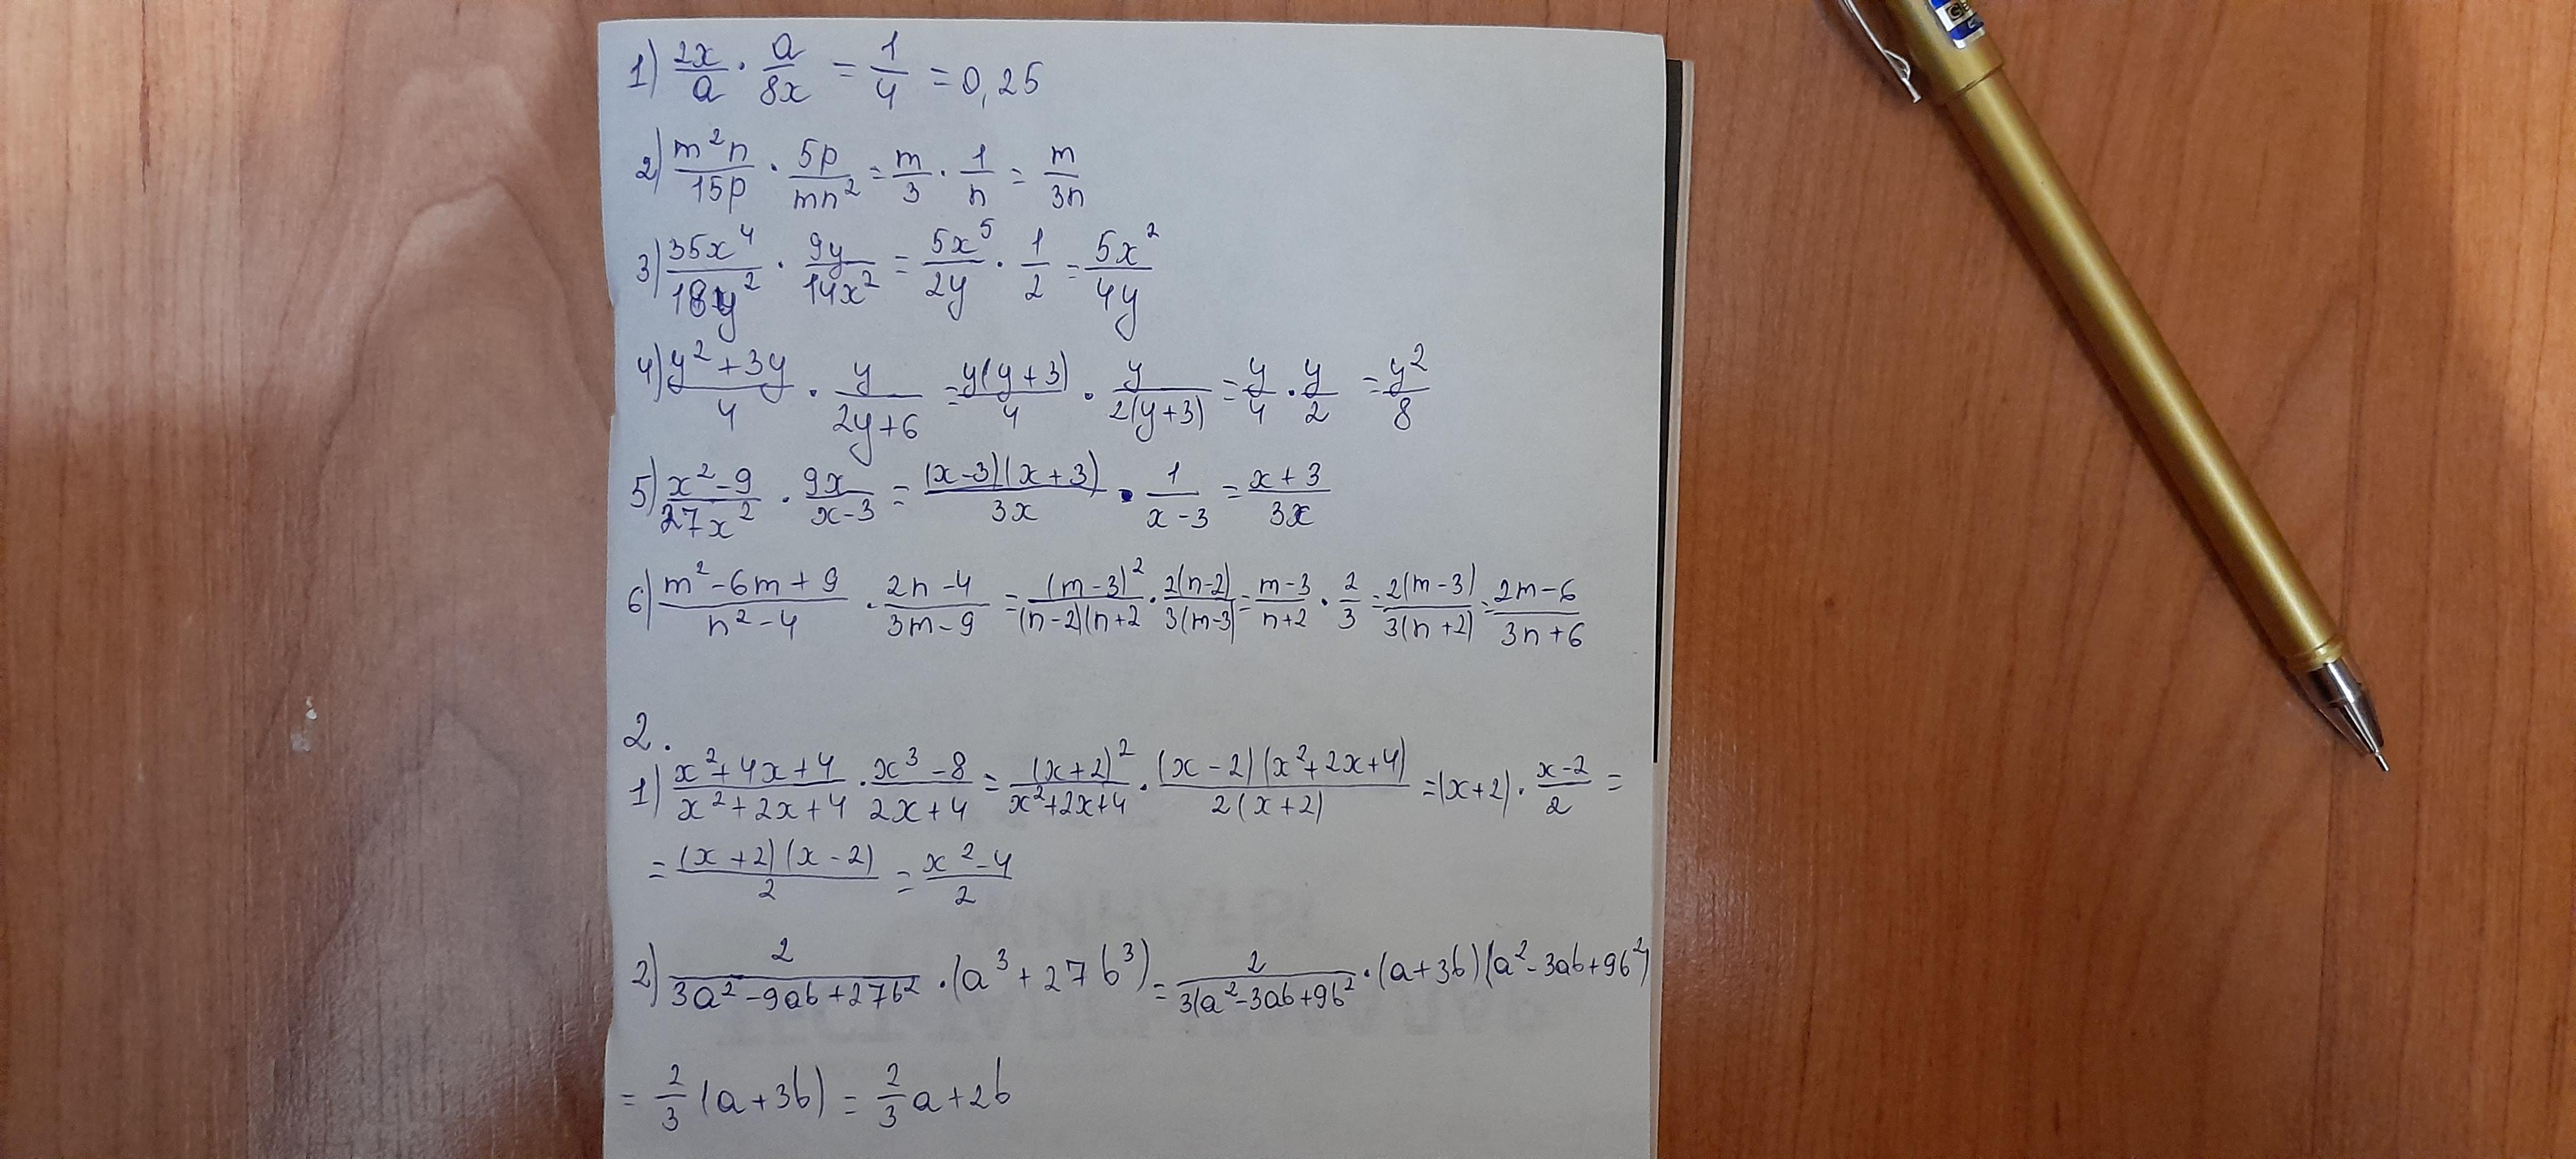 1) 2x/a · a/8x = 1/4 = 0,25
2) m²n/15p · 5p/mn² = m/3 · 1/n = m/3n
3) 35x⁴/18y² · 9y/14x² = 5x⁵/2y · 1/2 = 5x²/4y
4) y²+3y/4 · y/2y+6 = y(y+3)/4 · y/2(y+3) = y/4 · y/2 = y²/8
5) x²-9/27x² · 9x/x-3 = (x-3)(x+3)/3x · 1/x-3 = x+3/3x
6) m²-6m+9/n²-4 · 2n-4/3m-9 = (m-3)²/(n-2)(n+2 · 2(n-2)/3(m-3) = m-3/n+2 · 2/3 = 2(m-3)/3(n+2) = 2m-6/3n+6
2.
1) x²+4x+4/x²+2x+4 · x³-8/2x+4 = (x+2)²/x²+2x+4 · (x-2)(x²+2x+4)/2(x+2) = (x+2) · x-2/2 =
= (x+2)(x-2)/2 = x²-4/2
2) 2/3a²-9ab+27b² · (a³+27b³) = 2/3(a²-3ab+9b² · (a+3b)(a²-3ab+9b²)
= 2/3 (a+3b) = 2/3 a+2b